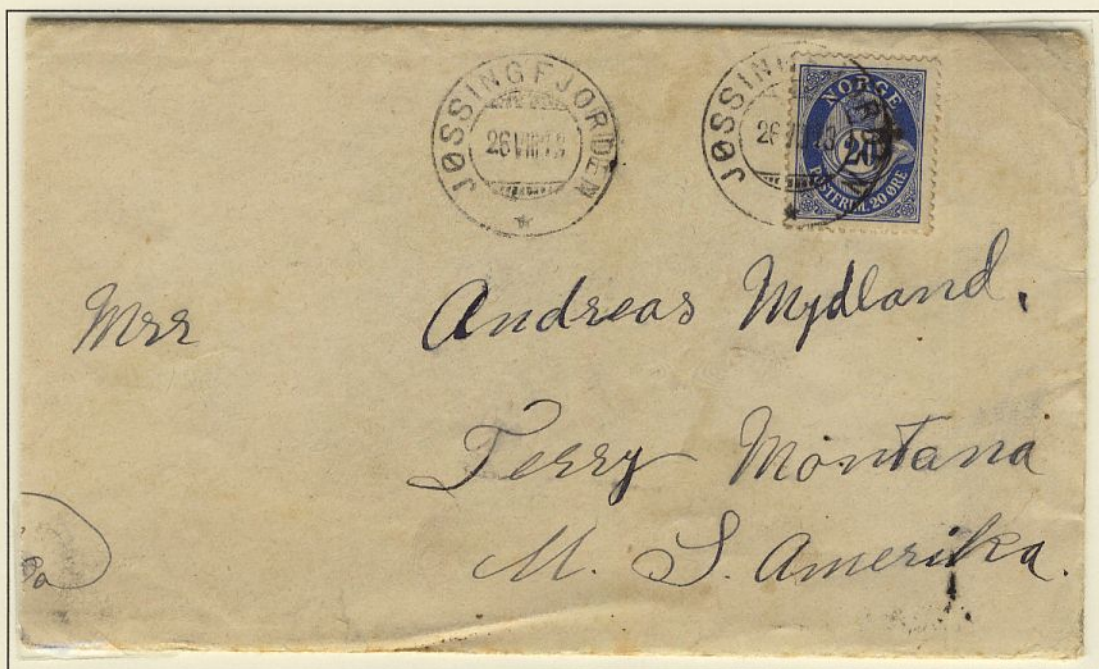 JØSSINGFJORDEN
26 VIII 13
JØSSIN
NORGE
20
POSTFRIM. 20 ØRE
Mrr Andreas Mydland.
Terry Montana
U. S. Amerika.